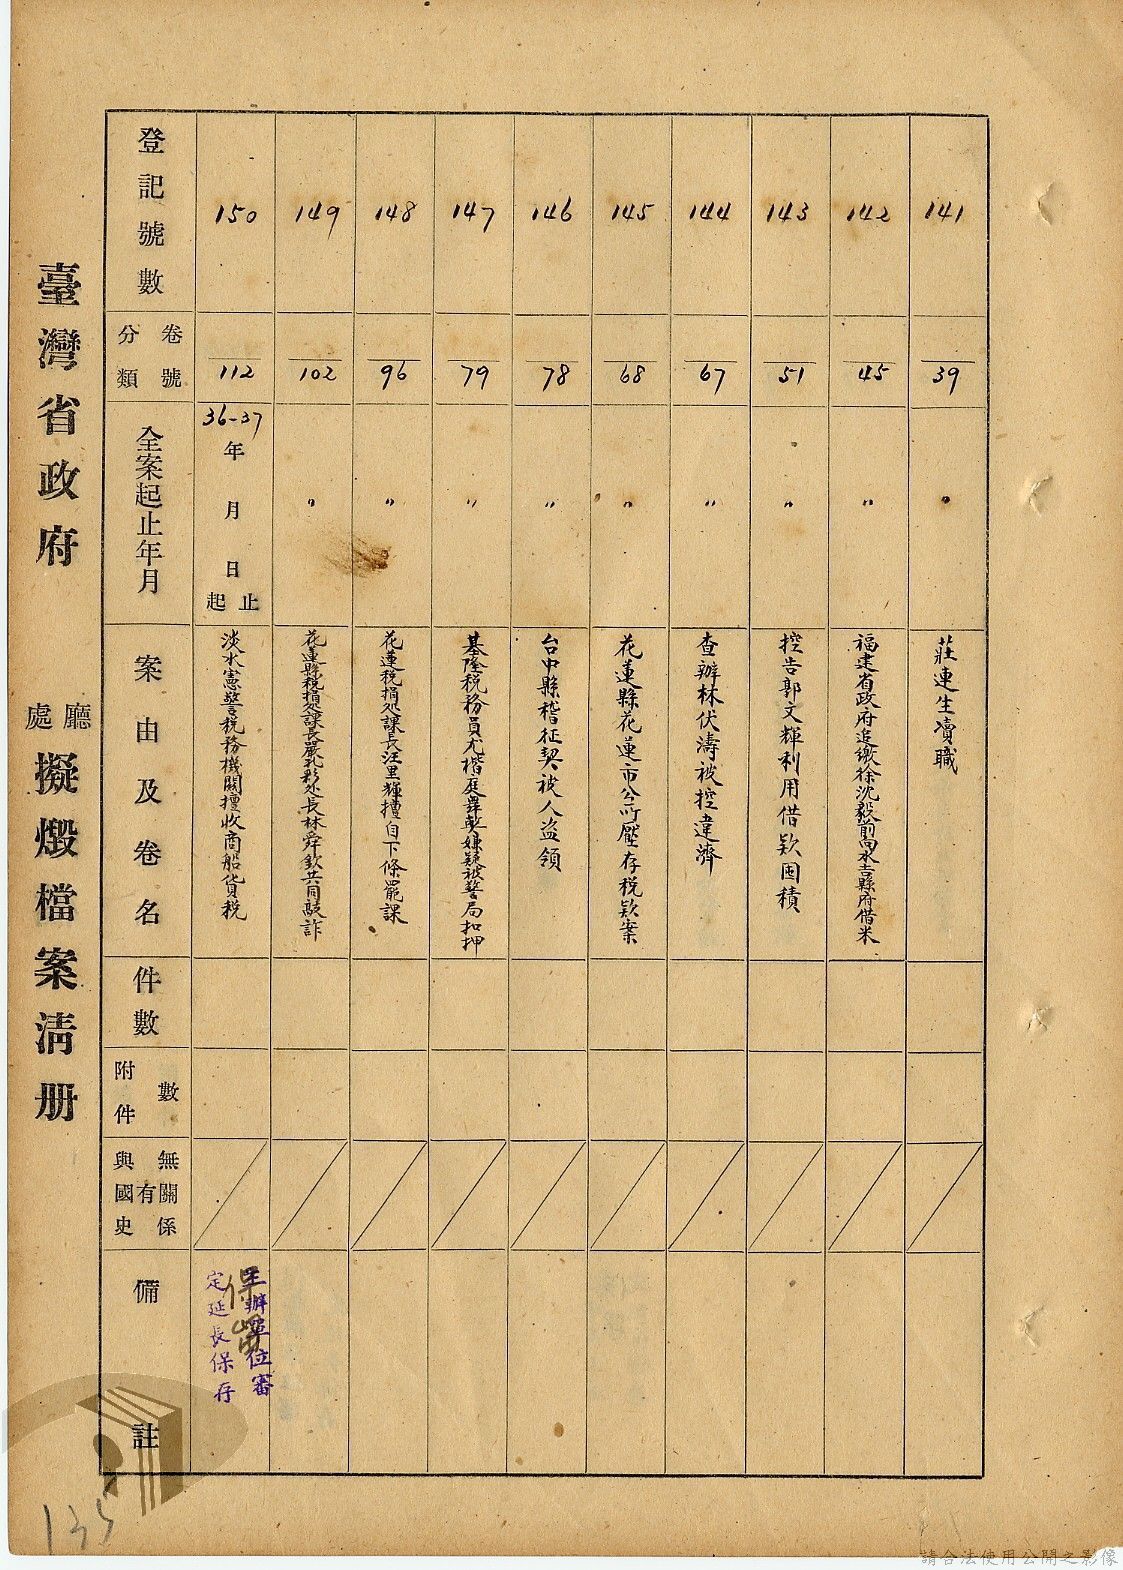 臺灣省政府 廳處 擬燬檔案清册
登記號數
150
149
148
147
146
145
144
143
142
141
卷號
分類
112
102
96
79
78
68
67
51
45
39
全案起止年月
36-37
年 月 日
起止
〃
〃
〃
〃
〃
〃
〃
〃
〃
案由及卷名
淡水憲警稅務機關擅收商船貨稅
花蓮縣稅捐處課長嚴孔彩處長林舜欽共同敲詐
花蓮稅捐処課長汪里輝擅自下條罷課
基隆稅務員尤楷庭舞契嫌疑被警局扣押
台中縣稽征契被人盜領
花蓮縣花蓮市公所壓存税欵案
查辦林伏濤被控違濟
控告郭文輝利用借欵囤積
福建省政府追繳徐沈毅前向永吉縣府借米
莊連生瀆職
件數
附件數
與國史有無關係
備註
保留
主辦單位審
定延長保存
135
請合法使用公開之影像